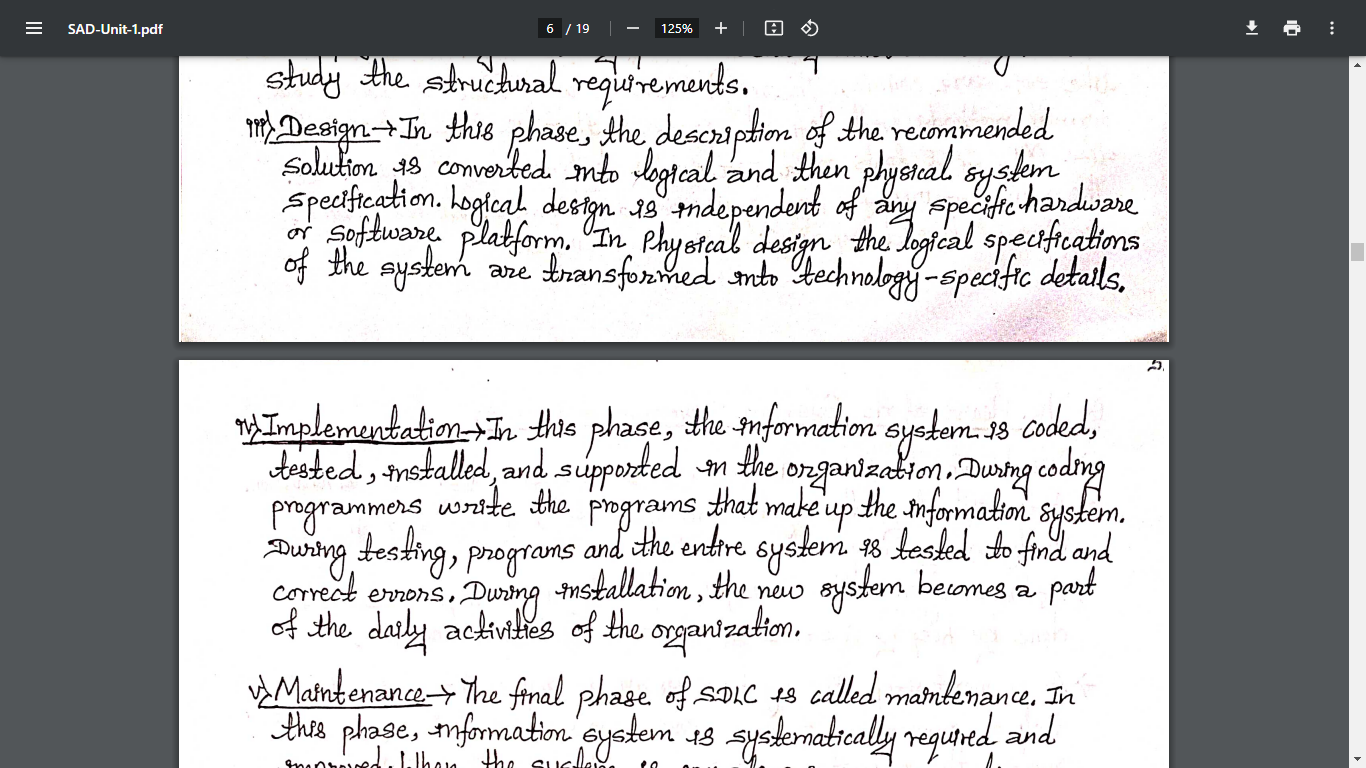 SAD-Unit-1.pdf
6 / 19
125%
study the structural requirements.
iii) Design→In this phase, the description of the recommended
solution is converted into logical and then physical system
specification. Logical design is independent of any specific hardware
or software platform. In Physical design the logical specifications
of the system are transformed into technology-specific details.
5.
iv) Implementation→In this phase, the information system is coded,
tested, installed, and supported in the organization. During coding
programmers write the programs that make up the information system.
During testing, programs and the entire system is tested to find and
correct errors. During installation, the new system becomes a part
of the daily activities of the organization.
v) Maintenance→ The final phase of SDLC is called maintenance. In
this phase, information system is systematically required and
improved. When the system is